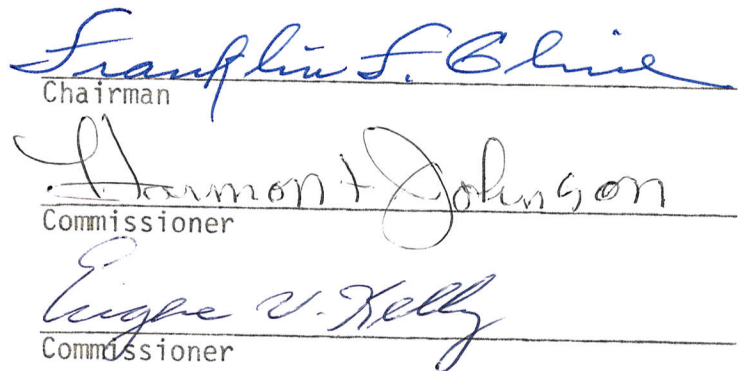 Franklin S. Cline
Chairman
Harmon Johnson
Commissioner
Eugene V. Kelly
Commissioner